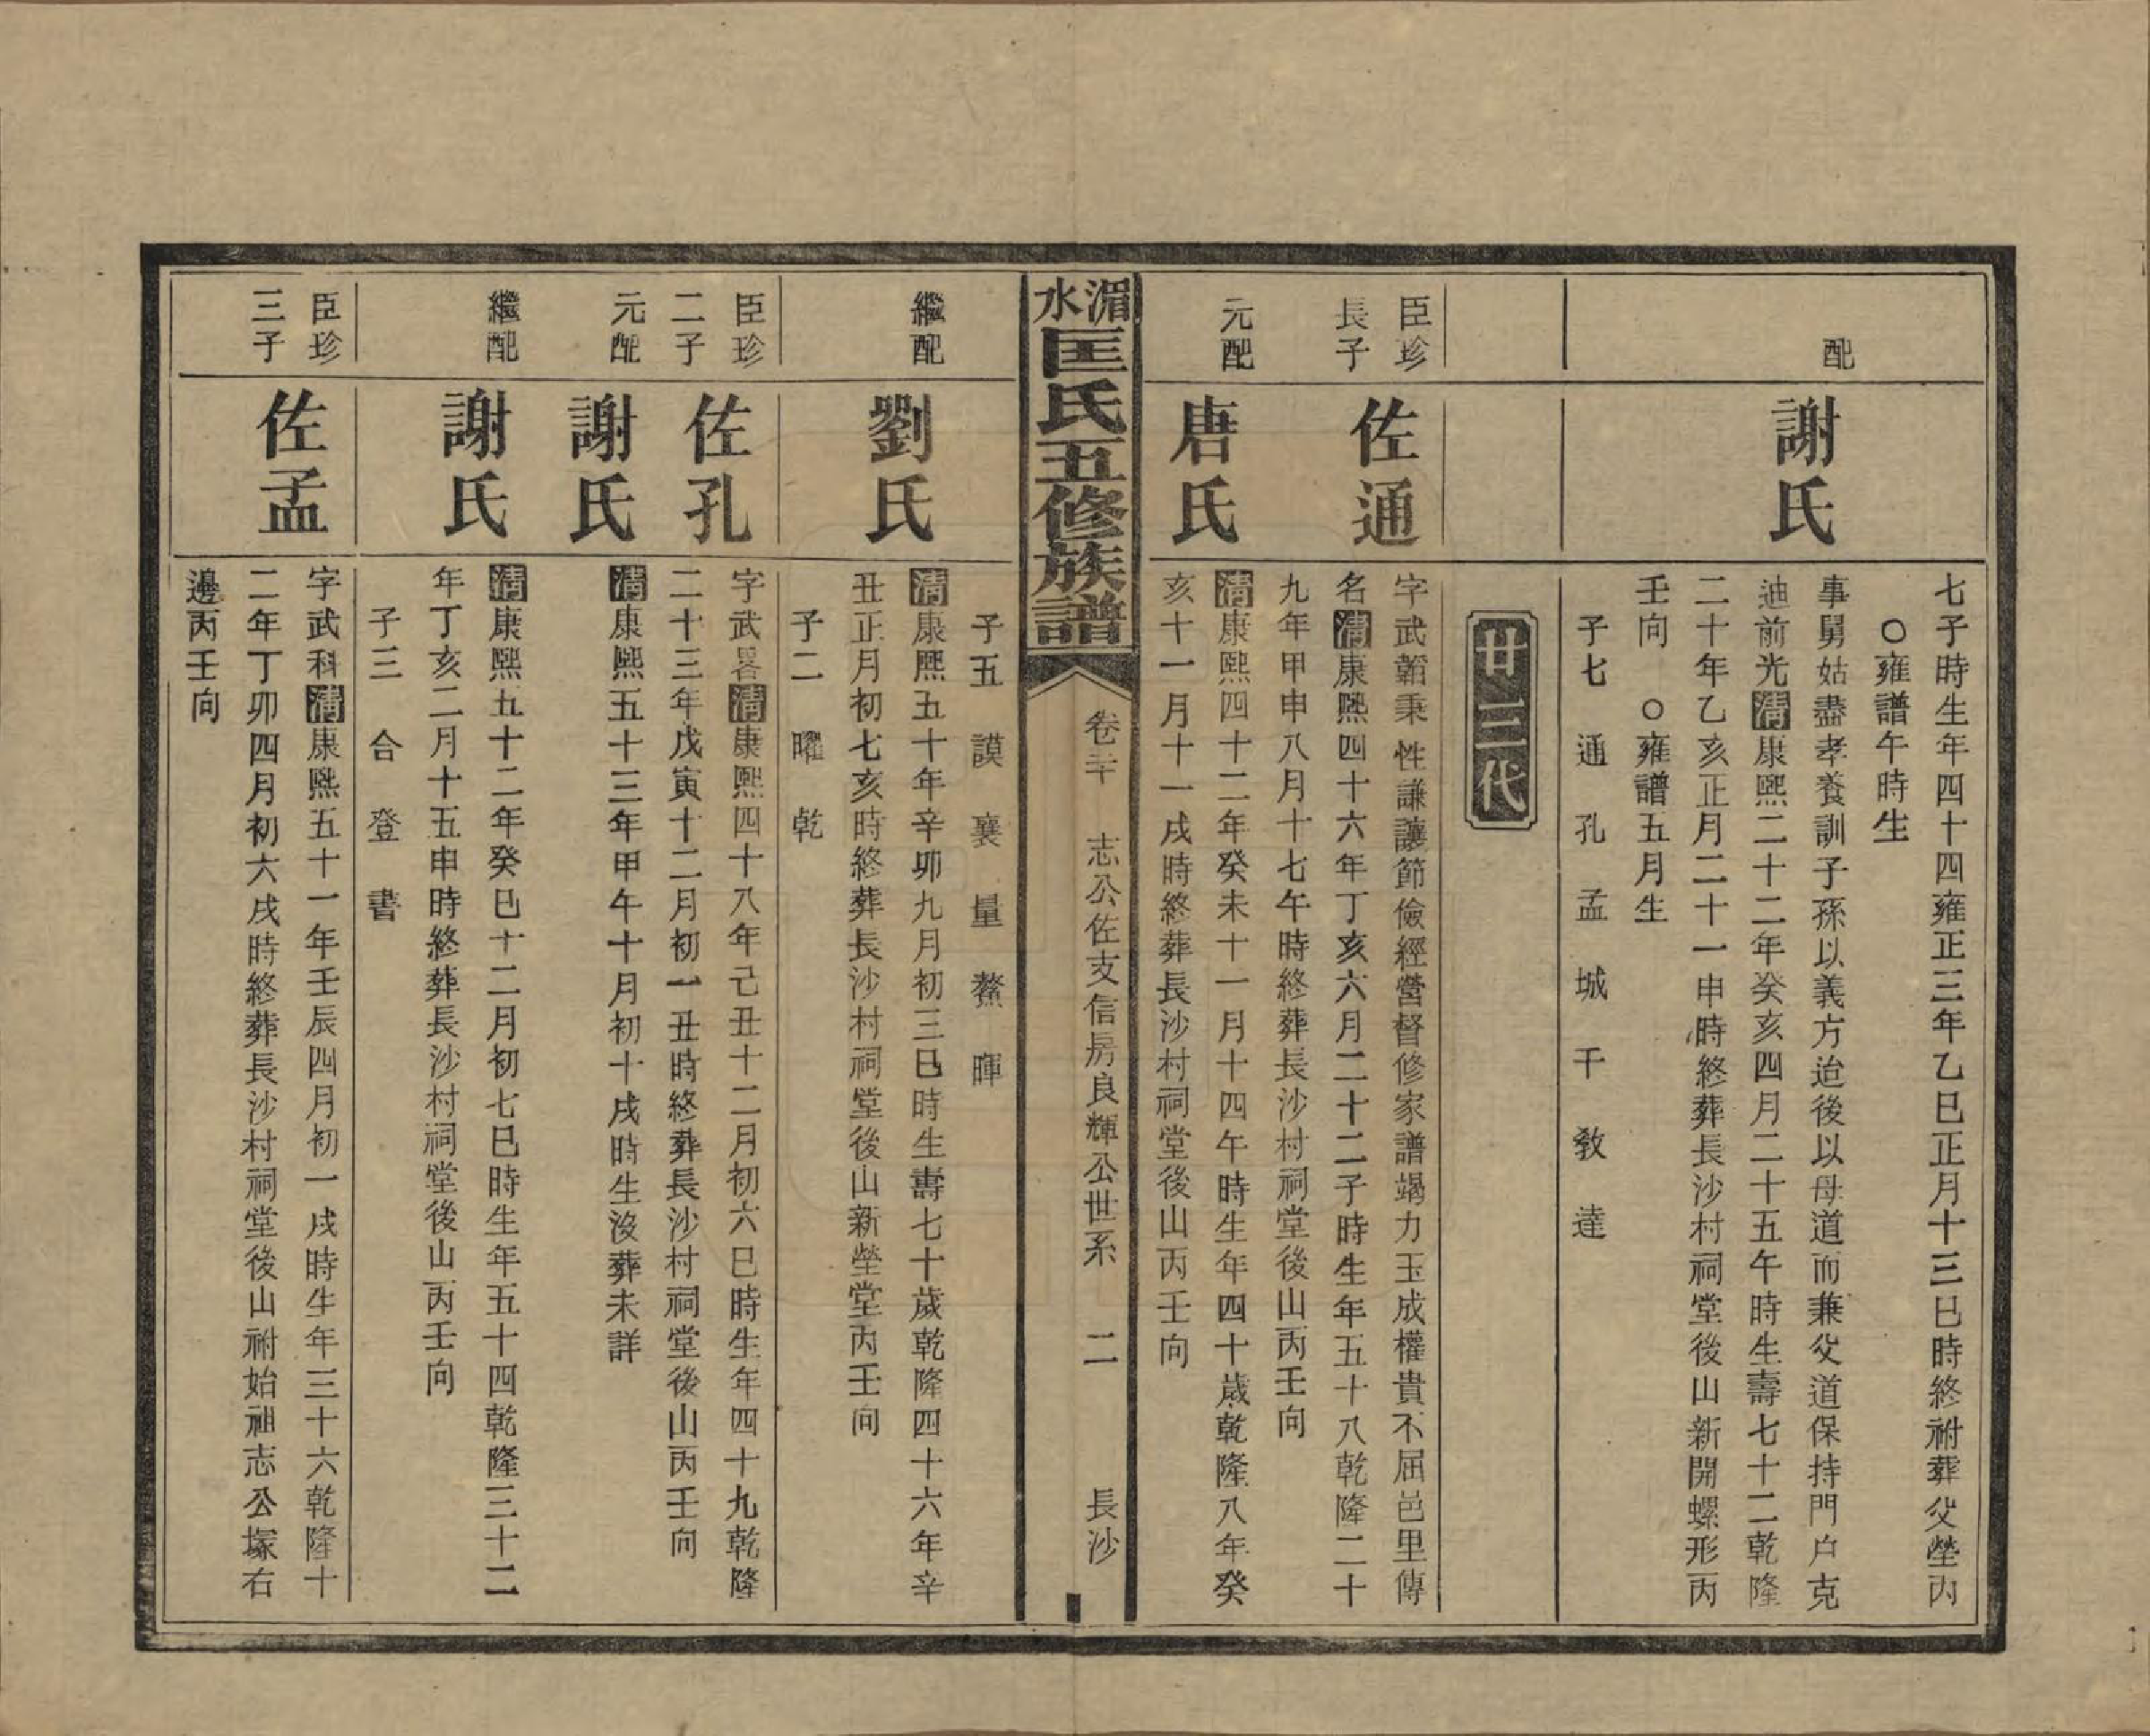 七子時生年四十四雍正三年乙巳正月十三巳時終祔葬父塋丙
〇雍譜午時生
配
謝氏
事舅姑盡孝養訓子孫以義方迨後以母道而兼父道保持門戶克
迪前光清康熙二十二年癸亥四月二十五午時生壽七十二乾隆
二十年乙亥正月二十一申時終葬長沙村祠堂後山新開螺形丙
壬向 〇雍譜五月生
子七 通 孔 孟 城 干 教 達
廿三代
臣珍
長子
佐通
字武韜秉性謙讓節儉經營督修家譜竭力玉成權貴不屈邑里傳
名清康熙四十六年丁亥六月二十二子時生年五十八乾隆二十
九年甲申八月十七午時終葬長沙村祠堂後山丙壬向
元配
唐氏
清康熙四十二年癸未十一月十四午時生年四十歲乾隆八年癸
亥十一月十一戌時終葬長沙村祠堂後山丙壬向
湄水匡氏五修族譜
卷三十 志公佐支信房良輝公世系 二 長沙
子五 謨 襄 量 熬 暉
繼配
劉氏
清康熙五十年辛卯九月初三巳時生壽七十歲乾隆四十六年辛
丑正月初七亥時終葬長沙村祠堂後山新塋堂丙壬向
子二 曜 乾
臣珍
二子
佐孔
字武畧清康熙四十八年己丑十二月初六巳時生年四十九乾隆
二十三年戊寅十二月初一丑時終葬長沙村祠堂後山丙壬向
元配
謝氏
清康熙五十三年甲午十月初十戌時生沒葬未詳
繼配
謝氏
清康熙五十二年癸巳十二月初七巳時生年五十四乾隆三十二
年丁亥二月十五申時終葬長沙村祠堂後山丙壬向
子三 合 登 書
臣珍
三子
佐孟
字武科清康熙五十一年壬辰四月初一戌時生年三十六乾隆十
二年丁卯四月初六戌時終葬長沙村祠堂後山祔始祖志公塚右
邊丙壬向